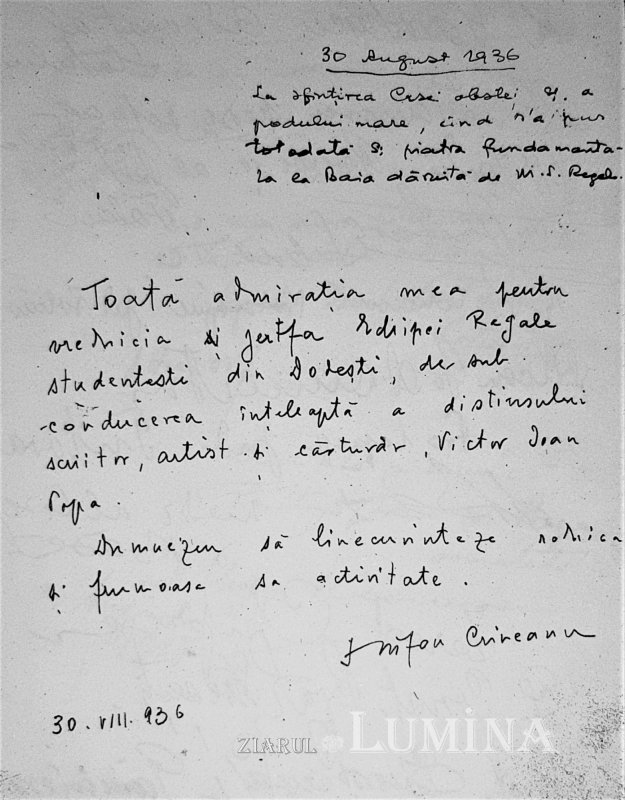 30 August 1936
La sfințirea Casei obștei și a
podului mare, cînd s'a pus
totodată și piatra fundamenta-
la la Baia dăruită de M.S. Regele.
Toată admirația mea pentru
vrednicia și jertfa Echipei Regale
studentesti din Dodești, de sub
conducerea înțeleaptă a distinsului
scriitor, artist și cărturar, Victor Ioan
Popa.
Dumnezeu să binecuvinteze rodnica
și frumoasa sa activitate.
30.VIII.936
ZIARUL LUMINA